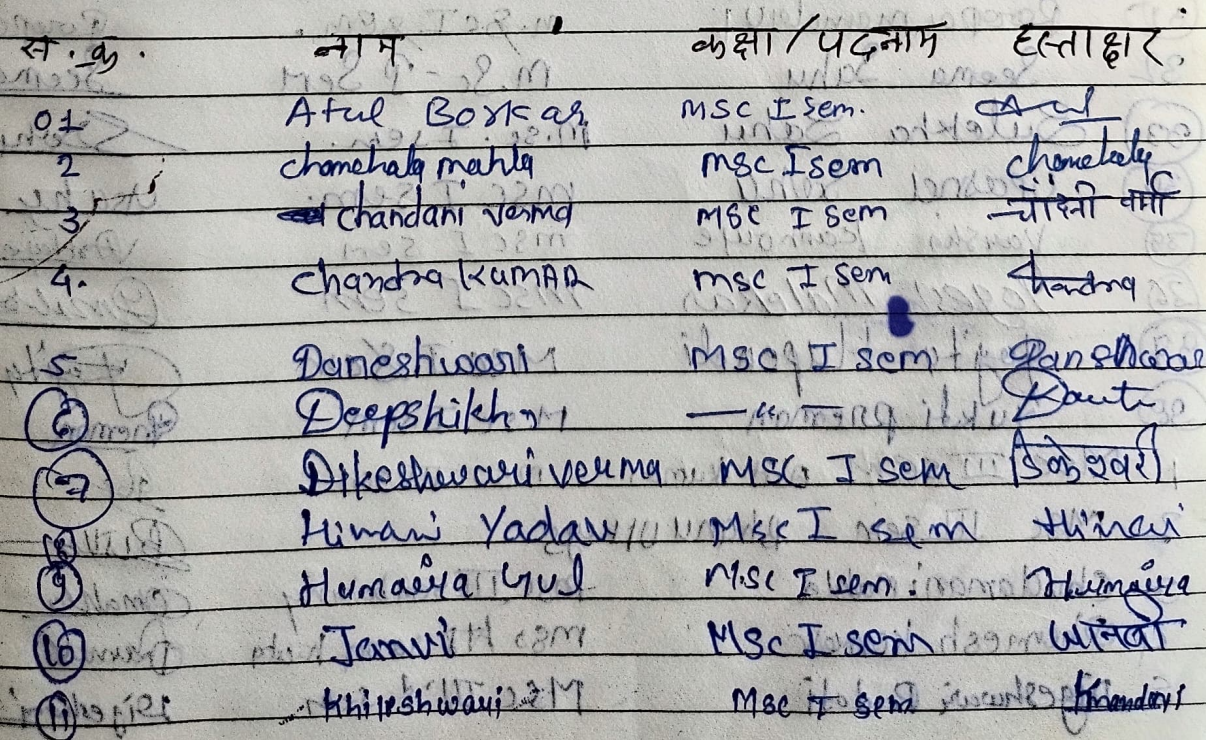 स.क्र. नाम कक्षा/पदनाम हस्ताक्षर
01 Atul Borkar MSC I sem.
2 chamehaly mahla MSC I sem chamehaly
3 chandani verma MSC I sem चाँदनी वर्मा
4. chandra KUMAR MSC I sem Chandra
5. Daneshwari MSC I sem Daneshwari
6 Deepshikha —〃—
7 Dikeshwari verma MSC I sem डिकेश्वरी
8 Himani Yadav MSC I sem Himani
9 Humaira Gul M.Sc I sem. Humaira
10 Janvi MSC I sem जानवी
11 Khileshwari MSC I sem